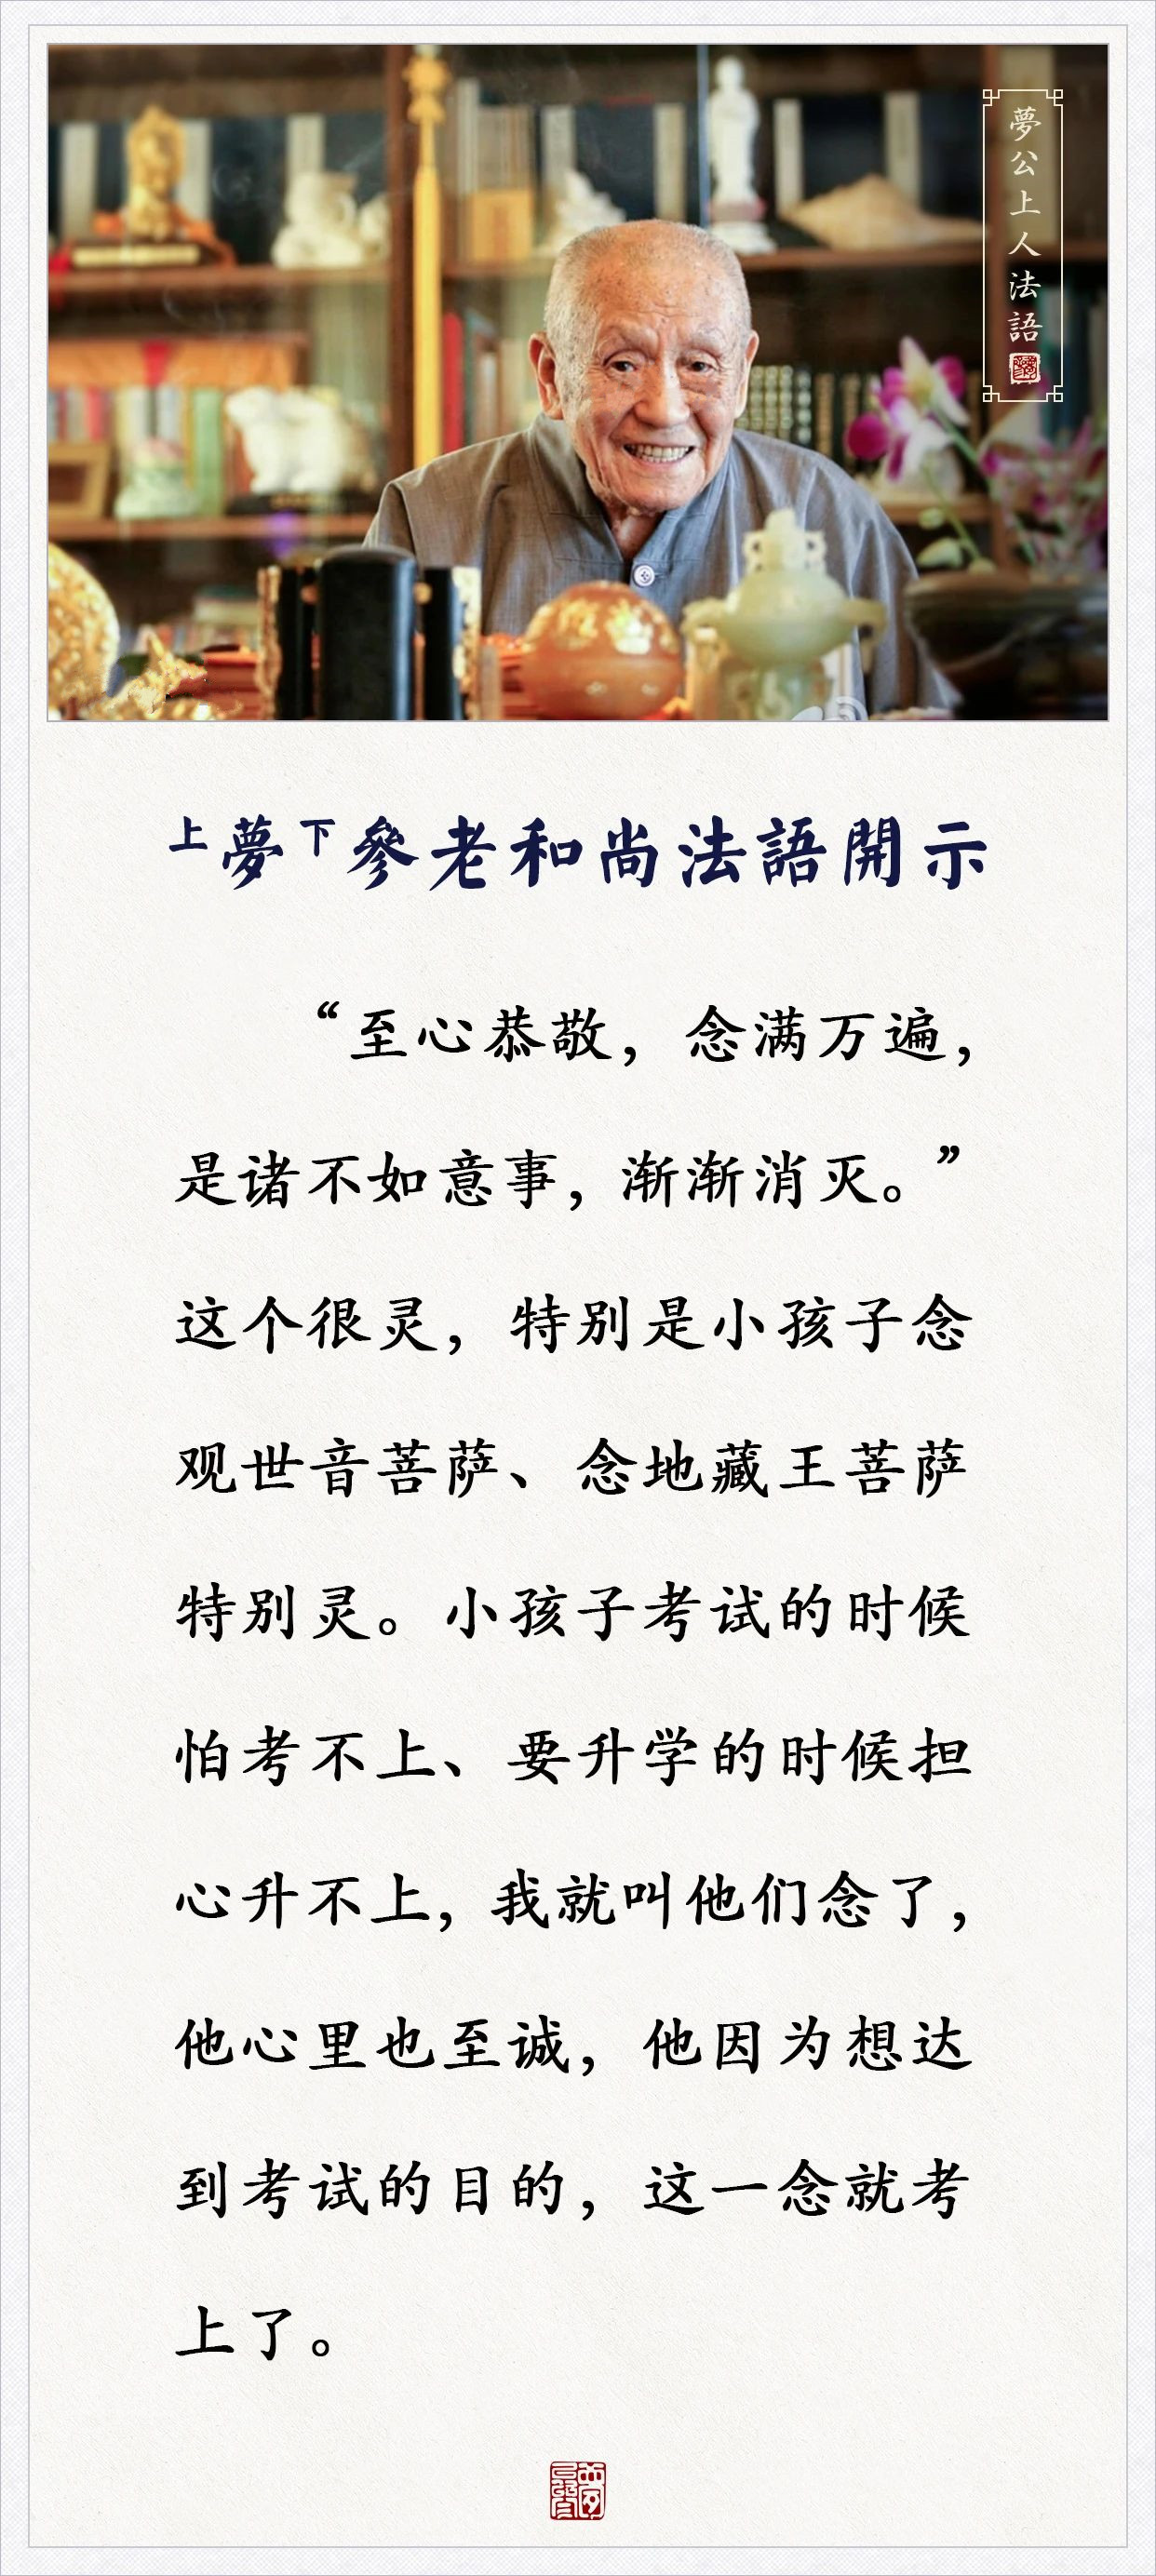 夢公上人法語
上夢下參老和尚法語開示
“至心恭敬，念满万遍，
是诸不如意事，渐渐消灭。”
这个很灵，特别是小孩子念
观世音菩萨、念地藏王菩萨
特别灵。小孩子考试的时候
怕考不上、要升学的时候担
心升不上，我就叫他们念了，
他心里也至诚，他因为想达
到考试的目的，这一念就考
上了。